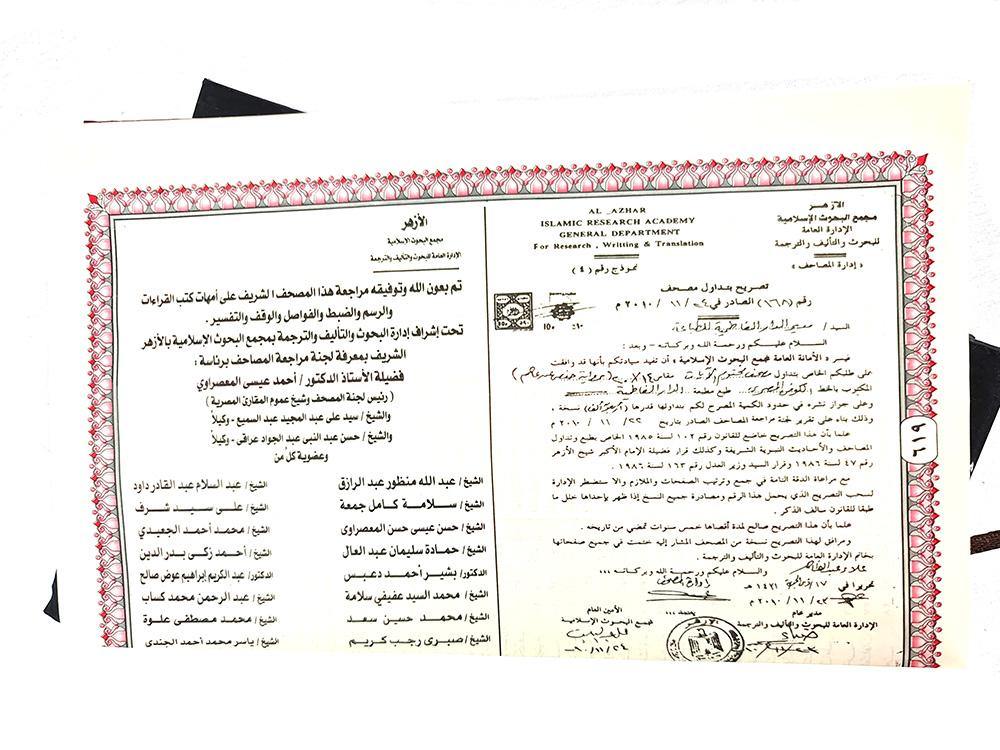 الأزهـر
مجمع البحوث الإسلامية
الإدارة العامة
للبحوث والتأليف والترجمة
« إدارة المصاحف »
AL _AZHAR
ISLAMIC RESEARCH ACADEMY
GENERAL DEPARTMENT
For Research , Writting & Translation
نموذج رقم ( ٤ )
تصريح بتداول مصحف
رقم (١٦٨) الصادر في ٢٤ / ١١ / ٢٠١٠ م
السيد /
السـلام عليـكم ورحمـة الله وبـركـاته – وبعد :
فيسر « الأمانة العامة لمجمع البحوث الإسلامية » أن تفيد سيادتكم بأنها قد وافقت
على طلبكم الخاص بتداول مصحف مقاس
المكتوب بالخط طبع مطبعة
وعلى جواز نشره في حدود الكمية المصرح لكم بتداولها قدرها نسخة .
وذلك بناء على تقرير لجنة مراجعة المصاحف الصادر بتاريخ ٢٢ / ١١ / ٢٠١٠ م
علما بأن هذا التصريح خاضع للقانون رقم ١٠٢ لسنة ١٩٨٥ الخاص بطبع وتداول
المصاحف والأحاديث النبوية الشريفة وكذلك قرار فضيلة الإمام الأكبر شيخ الأزهر
رقم ٤٧ لسنة ١٩٨٦ وقرار السيد وزير العدل رقم ١٦٣ لسنة ١٩٨٦ .
مع مراعاة الدقة التامة في جمع وترتيب الصفحات والملازم وإلا ستضطر الإدارة
لسحب التصريح الذي يحمل هذا الرقم ومصادرة جميع النسخ إذا ظهر بإحداها خلل ما
طبقا للقانون سالف الذكر .
علما بأن هذا التصريح صالح لمدة أقصاها خمس سنوات تمضي من تاريخه .
ومرافق لهذا التصريح نسخة من المصحف المشار إليه ختمت في جميع صفحاتها
بخاتم الإدارة العامة للبحوث والتأليف والترجمة .
والسلام عليكم ورحمة الله وبركاته ،،،
تحريرا في ١٧ ١٤٣١ هـ
٢٣ / ١١ / ٢٠١٠ م
مدير عام
الإدارة العامة للبحوث والتأليف والترجمة
يعتمد ،،،
الأزهر
الأمين العام
لمجمع البحوث الإسلامية
٦١٩
الأزهر
مجمع البحوث الإسلامية
الإدارة العامة للبحوث والتأليف والترجمة
تم بعون الله وتوفيقه مراجعة هذا المصحف الشريف على أمهات كتب القراءات
والرسم والضبط والفواصل والوقف والتفسير .
تحت إشراف إدارة البحوث والتأليف والترجمة بمجمع البحوث الإسلامية بالأزهر
الشريف بمعرفة لجنة مراجعة المصاحف برئاسة :
فضيلة الأستاذ الدكتور / أحمد عيسى المعصراوي
( رئيس لجنة المصحف وشيخ عموم المقارئ المصرية )
والشيخ / سيد على عبد المجيد عبد السميع - وكيلاً
والشيخ / حسن عبد النبى عبد الجواد عراقى - وكيلاً
وعضوية كل من
الشيخ / عبد الله منظور عبد الرازق
الشيخ / عبد السلام عبد القادر داود
الشيخ / سـلامة كامل جمعة
الشيخ / علـى سـيـد شـرف
الشيخ / حسن عيسى حسن المعصراوى
الشيخ / محمد أحمد الجعيدي
الشيخ / حمادة سليمان عبد العال
الشيخ / أحمد زكى بدر الدين
الدكتور / بشير أحمـد دعبـس
الدكتور / عبد الكريم إبراهيم عوض صالح
الشيخ / محمد السيد عفيفي سلامة
الشيخ / عبد الرحمن محمد كساب
الشيخ / محمـد حسين سعد
الشيخ / محمد مصطفى علـوة
الشيخ / صبـرى رجـب كريـم
الشيخ / ياسر محمد أحمد الجندى